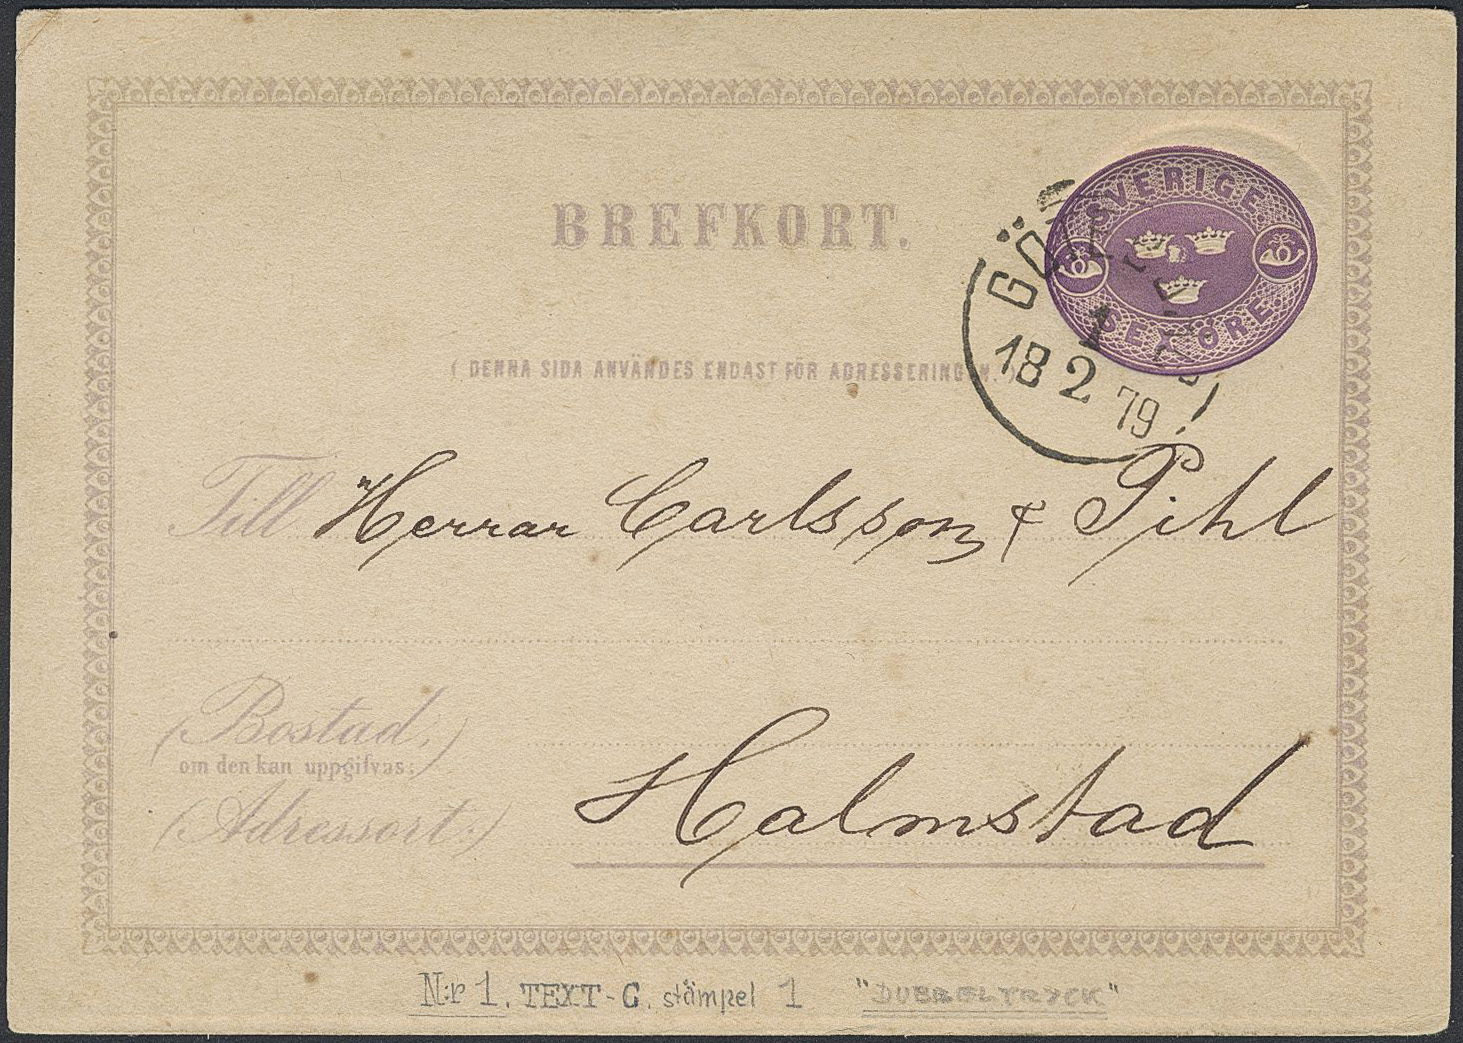 BREFKORT.
SVERIGE.
SEX ÖRE.
1
18 2 79
( DENNA SIDA ANVÄNDES ENDAST FÖR ADRESSERINGEN. )
Till Herrar Carlsson & Pihl
(Bostad,)
om den kan uppgifvas:
(Adressort:) Halmstad
N:r 1. TEXT-C. stämpel 1 "DUBBELTRYCK"